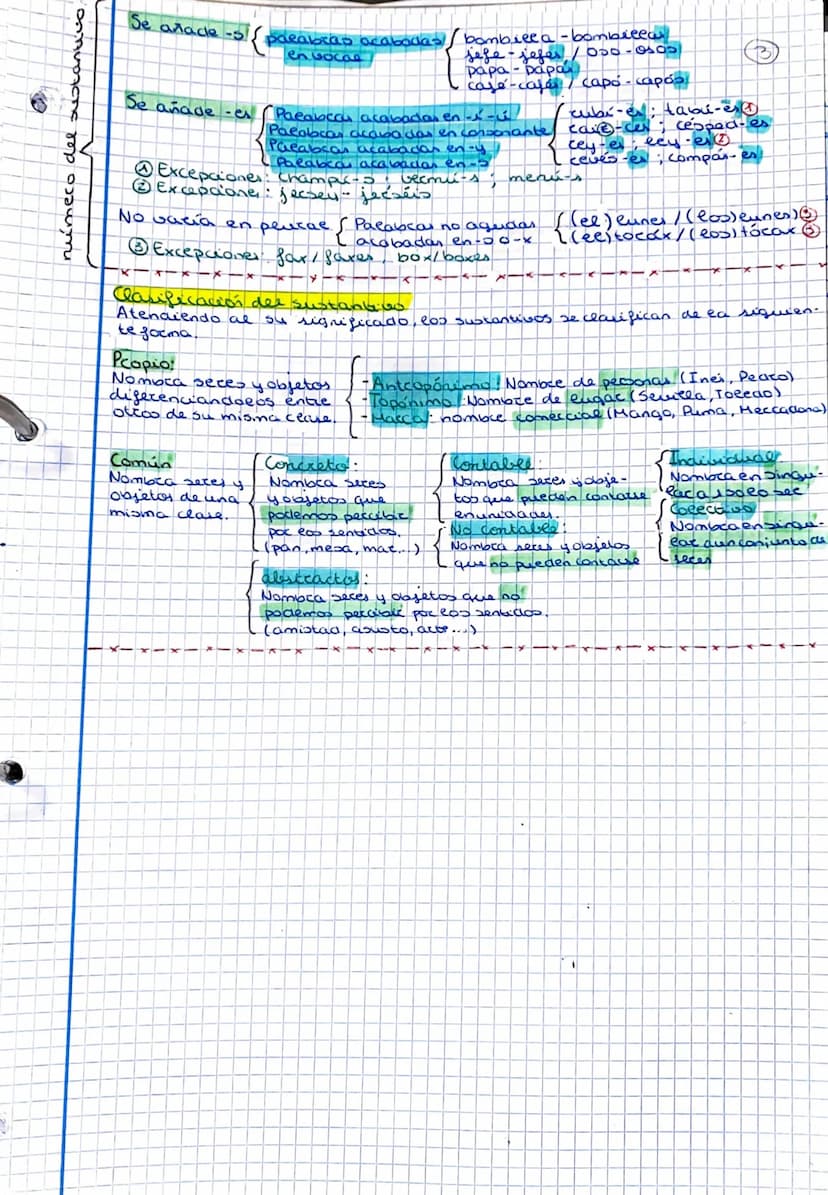 número del sustantivo
3
Se añade -s
palabras acabadas
en vocal
bombilla - bombillas
jefe - jefes / oso - osos
papá - papás
café - cafés / capó - capós
Se añade -es
Palabras acabadas en -í -ú
Palabras acabadas en consonante
Palabras acabadas en -y
Palabras acabadas en -s
rubí-es; tabú-es ①
; césped-es
rey-es; ley-es ②
revés-es; compás-es
① Excepciones: champú-s; vermú-s; menú-s
② Excepciones: jersey - jerséis
No varía en plural
Palabras no agudas
acabadas en -s o -x
(el) lunes / (los) lunes) ③
(el) tórax / (los) tórax ③
③ Excepciones: fax / faxes, box / boxes
Clasificación del sustantivo
Atendiendo al su significado, los sustantivos se clasifican de la siguien-
te forma.
Propio:
Nombra seres y objetos
diferenciándolos entre
otros de su misma clase.
- Antropónimo: Nombre de personas (Inés, Pedro)
- Topónimo: Nombre de lugar (Sevilla, Toledo)
- Marca: nombre comercial (Mango, Puma, Mercadona)
Común
Nombra seres y
objetos de una
misma clase.
Concreto:
Nombra seres
y objetos que
podemos percibir
por los sentidos.
(pan, mesa, mar...)
abstractos:
Nombra seres y objetos que no
podemos percibir por los sentidos.
(amistad, susto, arte...)
Contable:
Nombra seres y obje-
tos que pueden contarse
en unidades.
No contable:
Nombra seres y objetos
que no pueden contarse
Individual
Nombra en singu-
lar a 1 solo ser
Colectivo
Nombra en singu-
lar a un conjunto de
seres